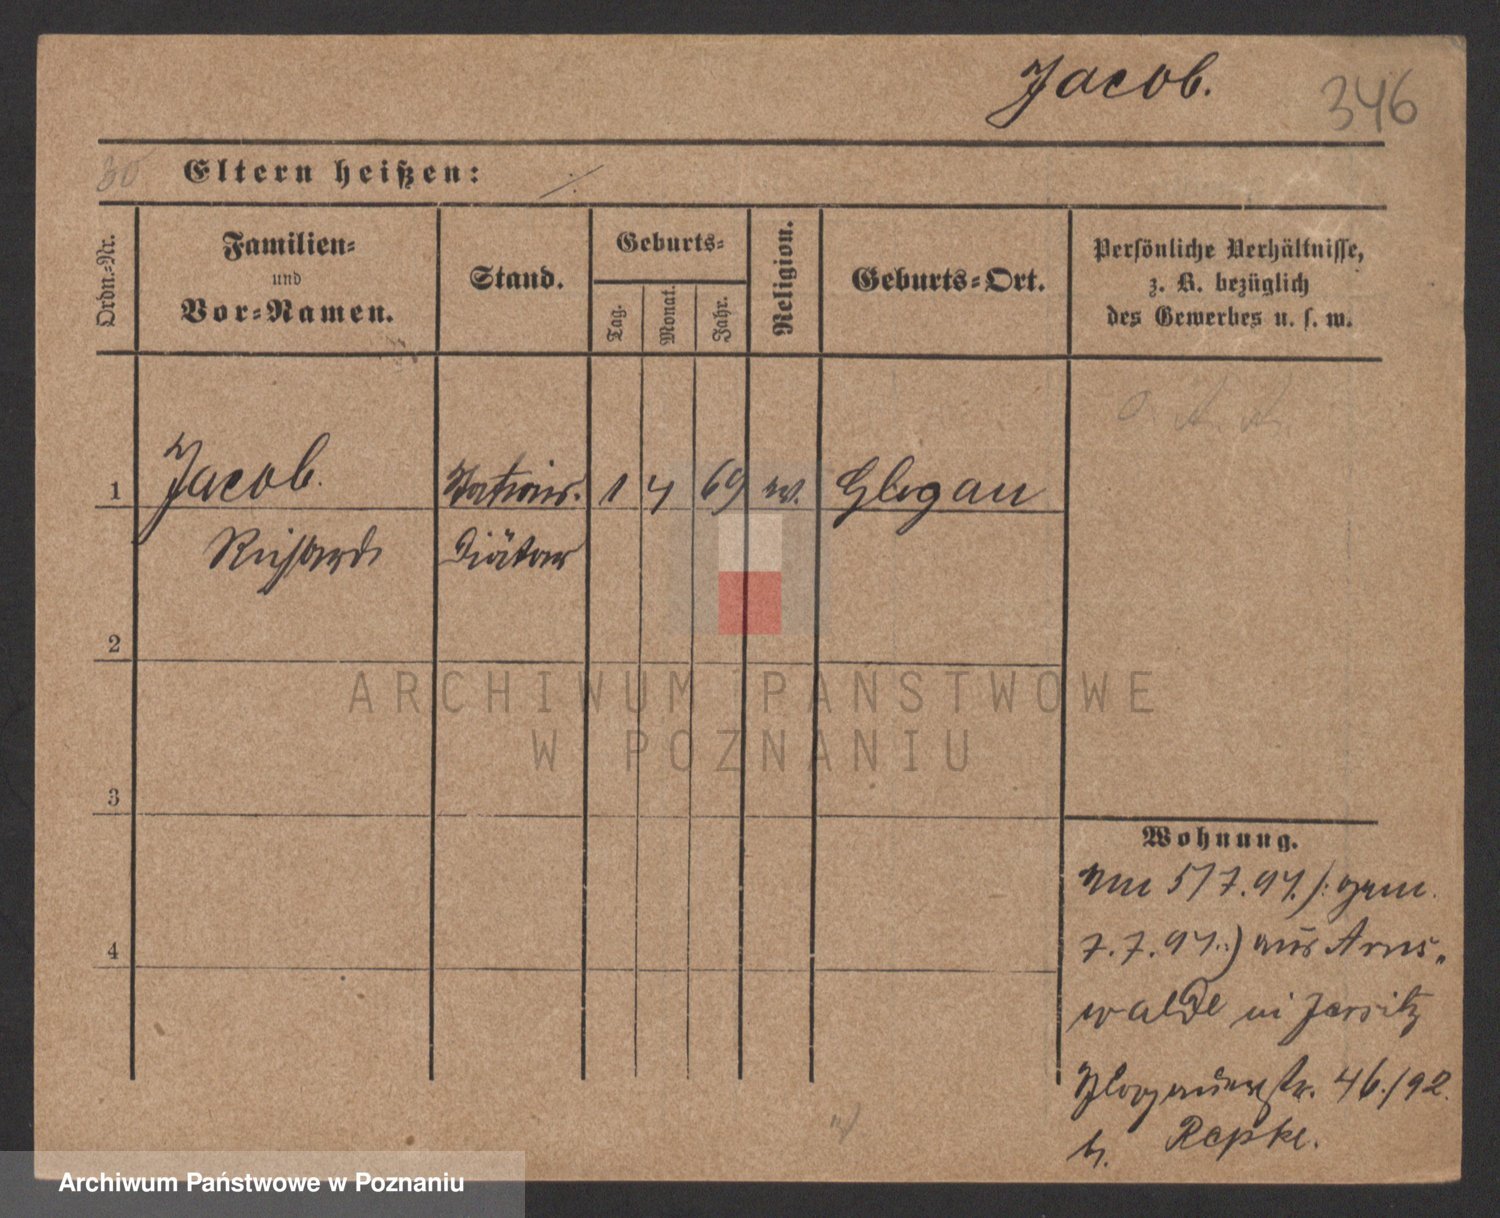 Jacob.
346
30
Eltern heißen: ./.
Ordn.-Nr.
Familien-
und
Vor-Namen.
Stand.
Geburts-
Tag.
Monat.
Jahr.
Religion.
Geburts-Ort.
Persönliche Verhältnisse,
z. B. bezüglich
des Gewerbes u. s. w.
1 Jacob. Stations- 1 4 69 ev. Glogau
Richard Diätar
2
3
4
Wohnung.
Am 5/7.97. /: gem.
7.7.97 :) aus Arns-
walde in Jersitz
Glogauerstr. 46./92.
b. Repke.
ARCHIWUM PAŃSTWOWE
W POZNANIU
Archiwum Państwowe w Poznaniu